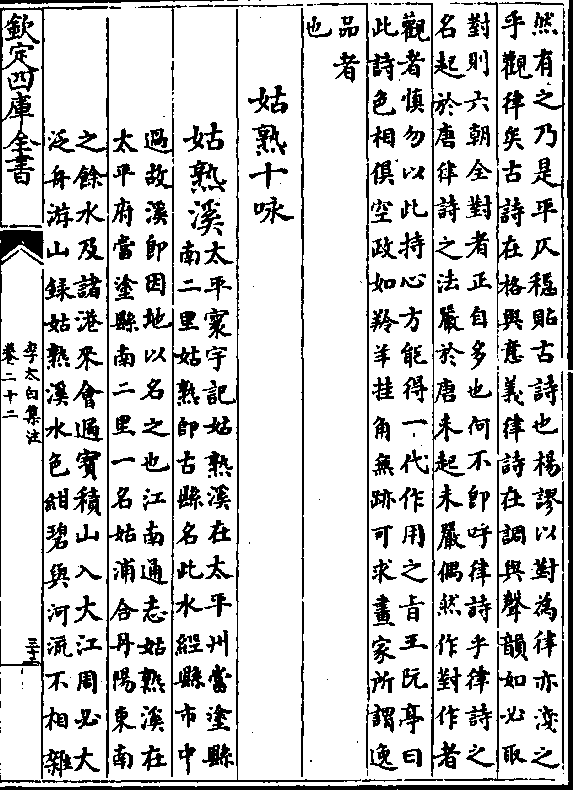 然有之乃是平仄穩貼古詩也楊謬以對為律亦淺之
乎觀律矣古詩在格與意義律詩在調與聲韻如必取
對則六朝全對者正自多也何不即呼律詩乎律詩之
名起於唐律詩之法嚴於唐未起未嚴偶然作對作者
觀者慎勿以此持心方能得一代作用之旨王阮亭曰
此詩色相俱空政如羚羊挂角無跡可求畫家所謂逸
品者
也
姑熟十咏
姑熟溪
太平寰宇記姑熟溪在太平州當塗縣
南二里姑熟即古縣名此水經縣市中
過故溪即因地以名之也江南通志姑熟溪在
太平府當塗縣南二里一名姑浦合丹陽東南
之餘水及諸港來會過寶積山入大江周必大
泛舟游山錄姑熟溪水色紺碧與河流不相雜
欽定四庫全書
李太白集注
卷二十二
三十三